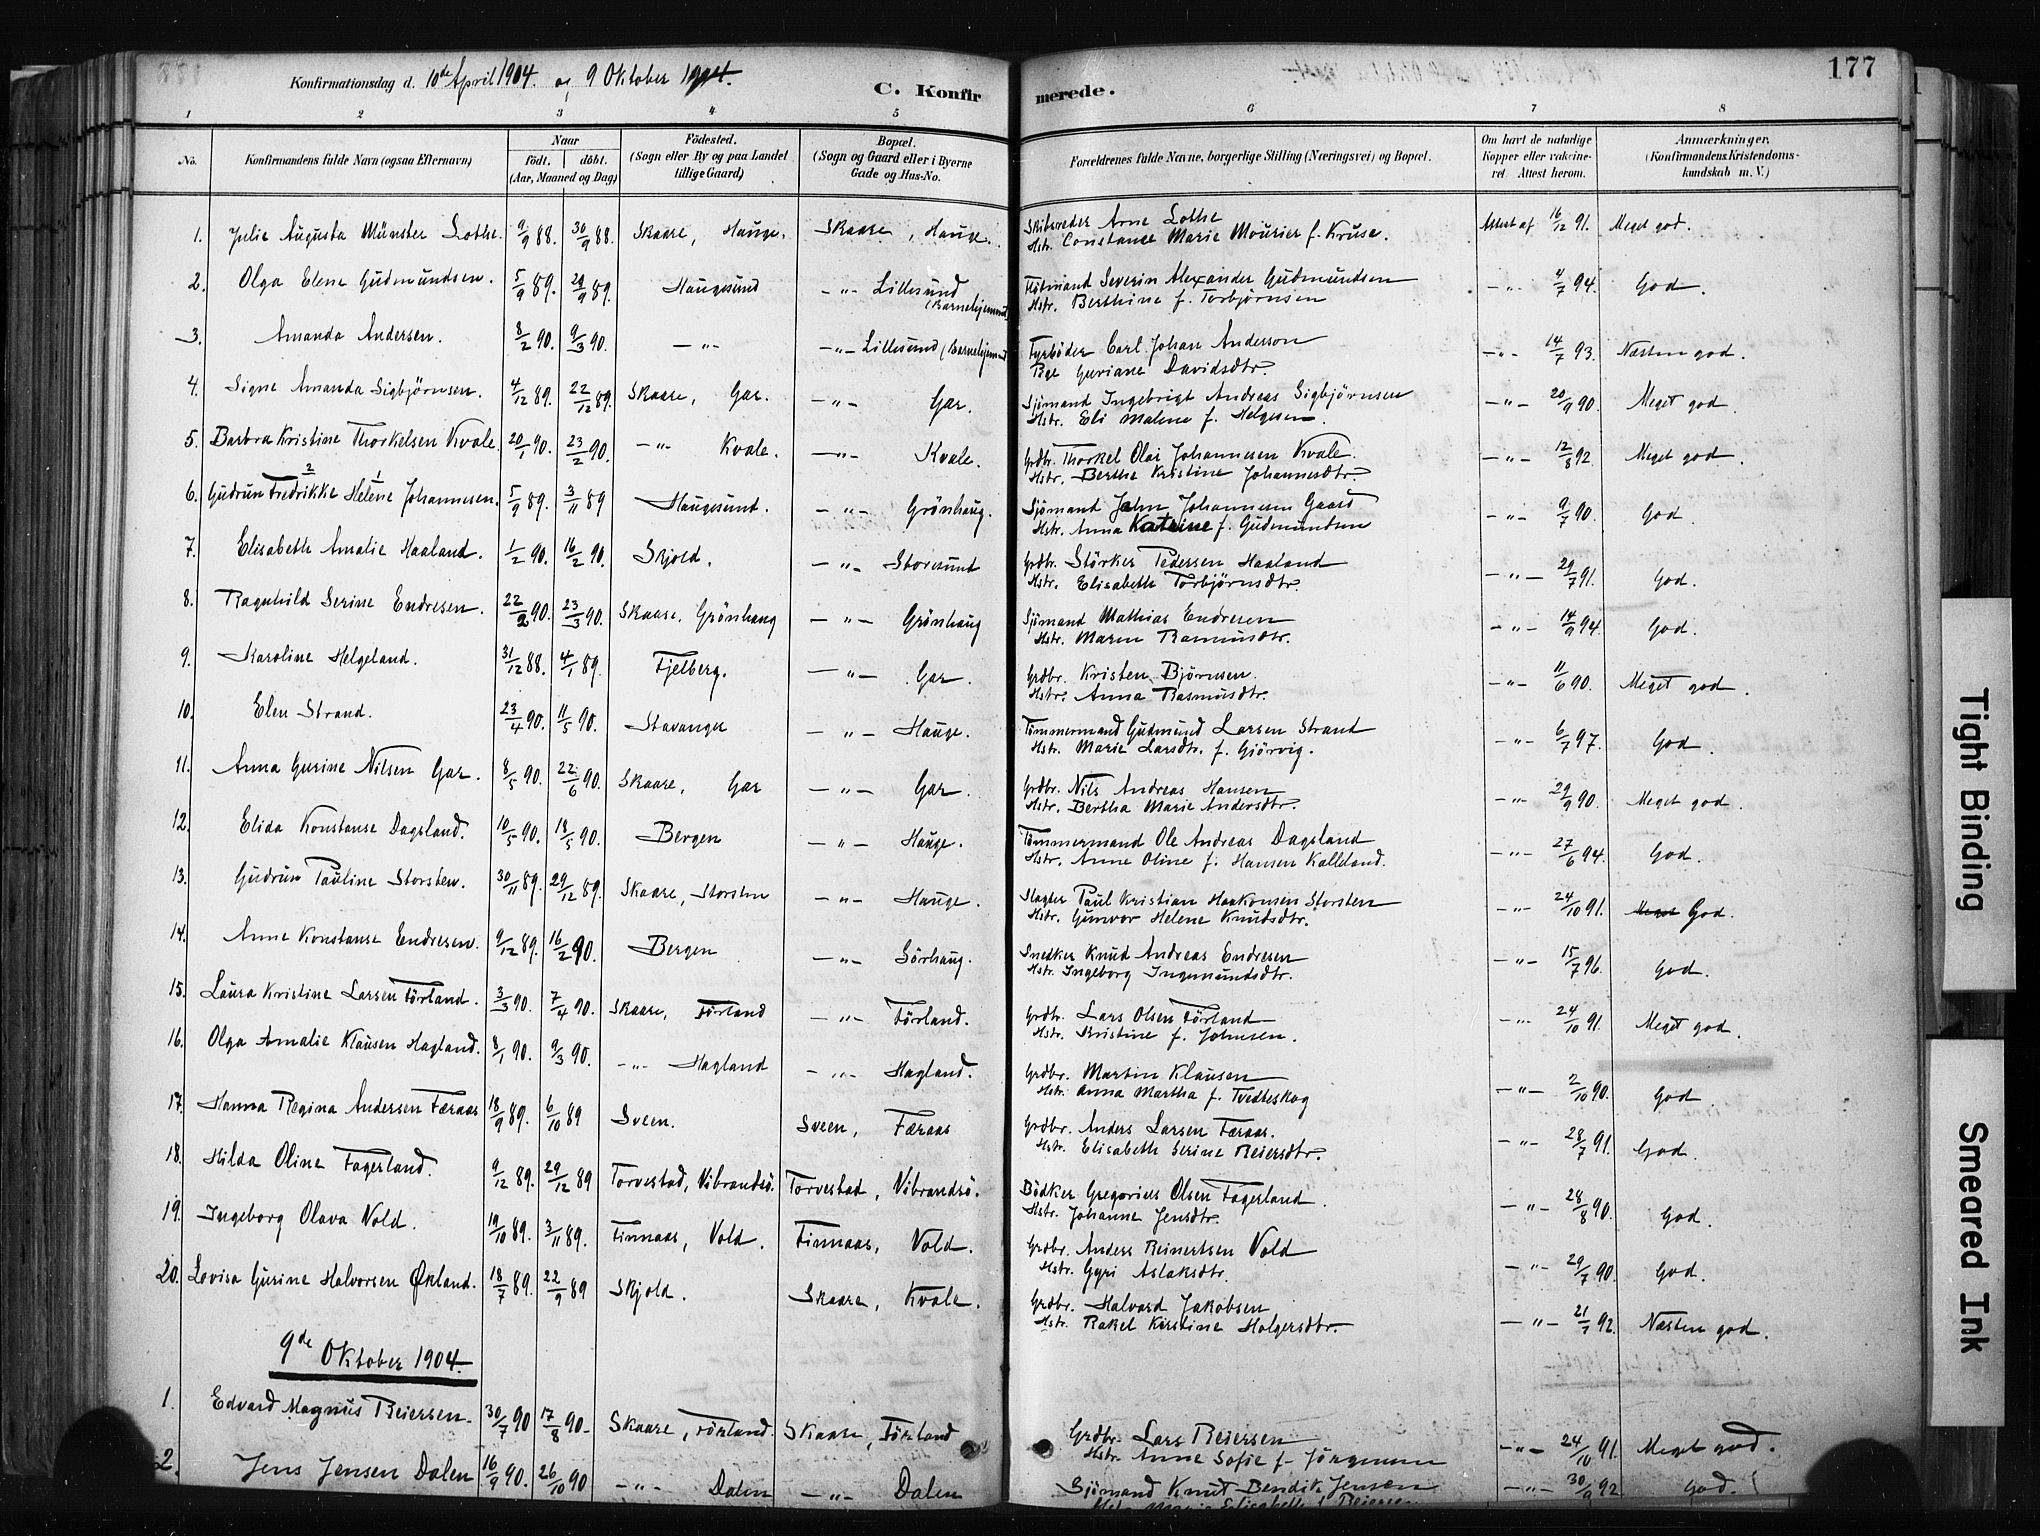 177
Konfirmationsdag d. 10de April 1904. og 9 Oktober 1904.
C. Konfirmerede.
1 2 3 4 5 6 7 8
No. Konfirmandens fulde Navn (ogsaa Efternavn) Naar født. døbt. (Aar, Maaned og Dag) Fødested. (Sogn eller By og paa Landet tillige Gaard) Bopæl. (Sogn og Gaard eller i Byerne Gade og Hus-No. Forældrenes fulde Navne, borgerlige Stilling (Næringsvei) og Bopæl. Om havt de naturlige Kopper eller vaccineret. Attest herom. Anmærkninger. (Konfirmandens Kristendomskundskab m. V.)
1. Julie Augusta Münster Lothe. 9/9 88. 30/9 88. Skaare, Hauge. Skaare, Hauge. Skibsreder Arne Lothe Attest af 16/12 91. Meget god.
Hstr. Constance Marie Mourier f. Kruse.
2. Olga Elene Gudmundsen. 5/9 89. 29/9 89. Haugesund -"- Lillesund (Barnehjemmet) Severin Alexander Gudmundsen -"- 4/7 94. God.
Hstr. Berthine f. Torbjørnsen
3. Amanda Andersen. 8/2 90. 9/3 90. -"- -"- Lillesund (Barnehjemmet) Fyrbøder Carl Johan Anderson -"- 14/7 93. Næsten god.
Pige Guriane Davidsdtr.
4. Signe Amanda Sigbjørnsen. 4/12 89. 22/12 89. Skaare, Gar. -"- Gar. Sjømand Ingebrigt Andreas Sigbjørnsen -"- 20/9 90. Meget god.
Hstr. Eli Malene f. Helgesen.
5. Barbra Kristine Thorkelsen Kvale. 20/1 90. 23/2 90. -"- Kvale. -"- Kvale. Grdbr. Thorkel Olai Johannesen Kvale. -"- 12/8 92. Meget god.
Hstr. Berthe Kristine Johannesdtr.
6. Gudrun Fredrikke 2 Helene 1 Johannesen. 5/9 89. 3/11 89 Haugesund. -"- Grönhaug. Sjømand John Johannesen Gaard -"- 9/7 90. God.
Hstr. Anna Katrine f. Gudmundsen
7. Elisabeth Amalie Haaland. 1/2 90. 16/2 90. Skjold. -"- Storesund Grdbr. Störker Pedersen Haaland -"- 29/7 91. God.
Hstr. Elisabeth Torbjørnsdtr.
8. Ragnhild Serine Endresen. 22/2 90. 23/3 90. Skaare, Grönhaug -"- Grönhaug Sjømand Mathias Endresen -"- 14/9 94. God.
Hstr. Maren Rasmusdtr.
9. Karoline Helgeland. 31/12 88. 4/1 89. Fjelberg. -"- Gar. Grdbr. Kristen Bjørnsen. -"- 11/6 90. Meget god.
Hstr. Anna Rasmusdtr.
10. Elen Strand. 23/4 90. 11/5 90. Stavanger -"- Hauge. Tømmermand Gudmund Larsen Strand -"- 6/7 97. God.
Hstr. Marie Larsdtr. f. Gjörvig.
11. Anna Gurine Nilsen Gar. 8/5 90. 22/6 90. Skaare, Gar -"- Gar. Grdbr. Nils Andreas Hansen -"- 29/9 90. Meget god.
Hstr. Bertha Marie Andersdtr.
12. Elida Konstanse Dagsland. 10/5 90. 18/5 90. Bergen -"- Hauge. Tømmermand Ole Andreas Dagsland -"- 27/6 94. God.
Hstr. Anne Oline f. Hansen Kalleland.
13. Gudrun Pauline Storsten. 30/11 89. 29/12 89. Skaare, Storsten -"- Hauge. Slagter Paul Kristian Haakonsen Storsten -"- 24/10 91. Meget God.
Hstr. Gunvor Helene Knudsdtr.
14. Anne Konstanse Endresen. 9/12 89. 16/2 90. Bergen -"- Sörhaug. Snedker Knud Andreas Endresen -"- 15/7 96. God.
Hstr. Ingeborg Ingemundsdtr.
15. Laura Kristine Larsen Förland. 3/3 90. 7/4 90. Skaare, Förland -"- Förland. Grdbr. Lars Olsen Förland -"- 24/10 91. Meget god.
Hstr. Kristine f. Johnsen.
16. Olga Amalie Klausen Hagland. 8/1 90. 9/3 90. -"- Hagland -"- Hagland. Grdbr. Martin Klausen -"- 2/10 90. God.
Hstr. Anna Martha f. Tvedteskog
17. Hanna Regina Andersen Færaas 18/9 89. 6/10 89 Sveen. Sveen, Færaas Grdbr. Anders Larsen Færaas. -"- 28/7 91. God.
Hstr. Elisabeth Serine Reiersdtr.
18. Hilda Oline Fagerland. 9/12 89. 29/12 89 Torvestad, Vibrandsö. Torvestad, Vibrandsö. Bødker Gregorius Olsen Fagerland. -"- 28/8 90. God.
Hstr. Johanne Jensdtr.
19. Ingeborg Olava Vold. 19/10 89. 3/11 89. Finnaas, Vold. Finnaas, Vold. Grdbr. Anders Reinertsen Vold -"- 29/7 90. God.
Hstr. Gyri Aslaksdtr.
20. Lovisa Gurine Halvorsen Økland. 18/7 89. 22/9 89 Skjold. Skaare, Kvale. Grdbr. Halvard Jakobsen -"- 21/7 92. Næsten god.
Hstr. Rakel Kirstine Holgersdtr.
9de Oktober 1904.
1. Edvard Magnus Reiersen. 30/7 90 17/8 90. Skaare, Förland. Skaare, Förland Grdbr. Lars Reiersen -"- 24/10 91. Meget god.
Hstr. Anne Sofie f. Jörgensen
2. Jens Jensen Dalen 16/9 90. 26/10 90 -"- Dalen -"- Dalen Sjømand Knut Bendik Jensen -"- 30/9 92 God.
Hstr. Maria Elisabeth f. Reiersen
Tight Binding
Smeared Ink